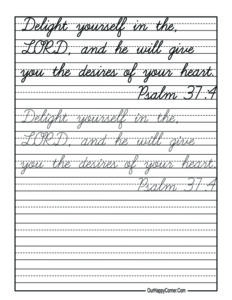 Delight yourself in the,
LORD, and he will give
you the desires of your heart.
Psalm 37:4
Delight yourself in the,
LORD, and he will give
you the desires of your heart.
Psalm 37:4
OurHappyCorner.Com